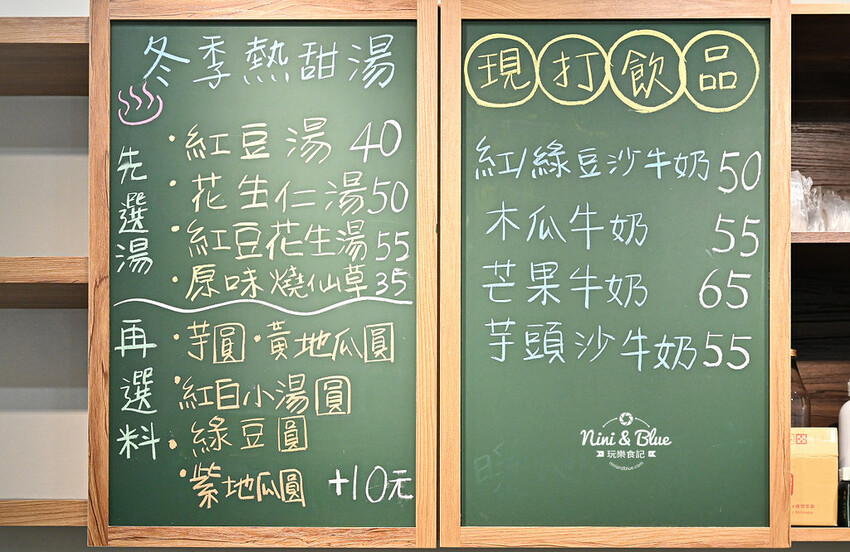 冬季熱甜湯
先選湯
·紅豆湯 40
·花生仁湯 50
·紅豆花生湯 55
·原味燒仙草 35
再選料
·芋圓 ·黃地瓜圓
·紅白小湯圓
·綠豆圓
·紫地瓜圓 +10元
現打飲品
紅/綠豆沙牛奶 50
木瓜牛奶 55
芒果牛奶 65
芋頭沙牛奶 55
Nini & Blue
玩樂食記
niniandblue.com